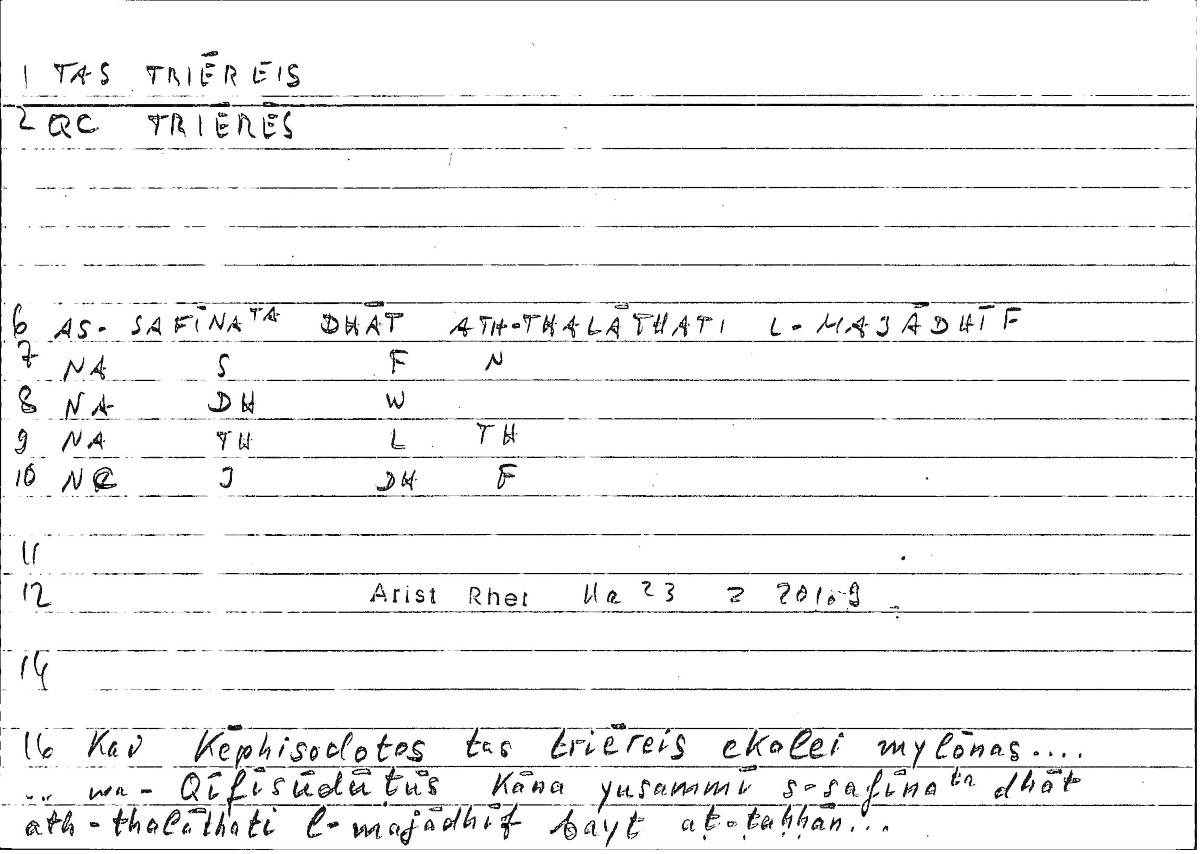 1 TAS TRIĒREIS
2 QC TRIĒRĒS
6 AS- SAFĪNATA DHĀT ATH-THALĀTHATI L-MAJĀDHĪF
7 NA S F N
8 NA DH W
9 NA TH L TH
10 NC J DH F
11
12 Arist Rhet 11a 23 = 201,9
14
16 Kai Kēphisodotos tas triēreis ekalei mylōnas....
.. wa- Qīfīsūdūtūs kāna yusammī s-safīnata dhāt
ath-thalāthati l-majādhīf bayt aṭ-ṭaḥḥān...